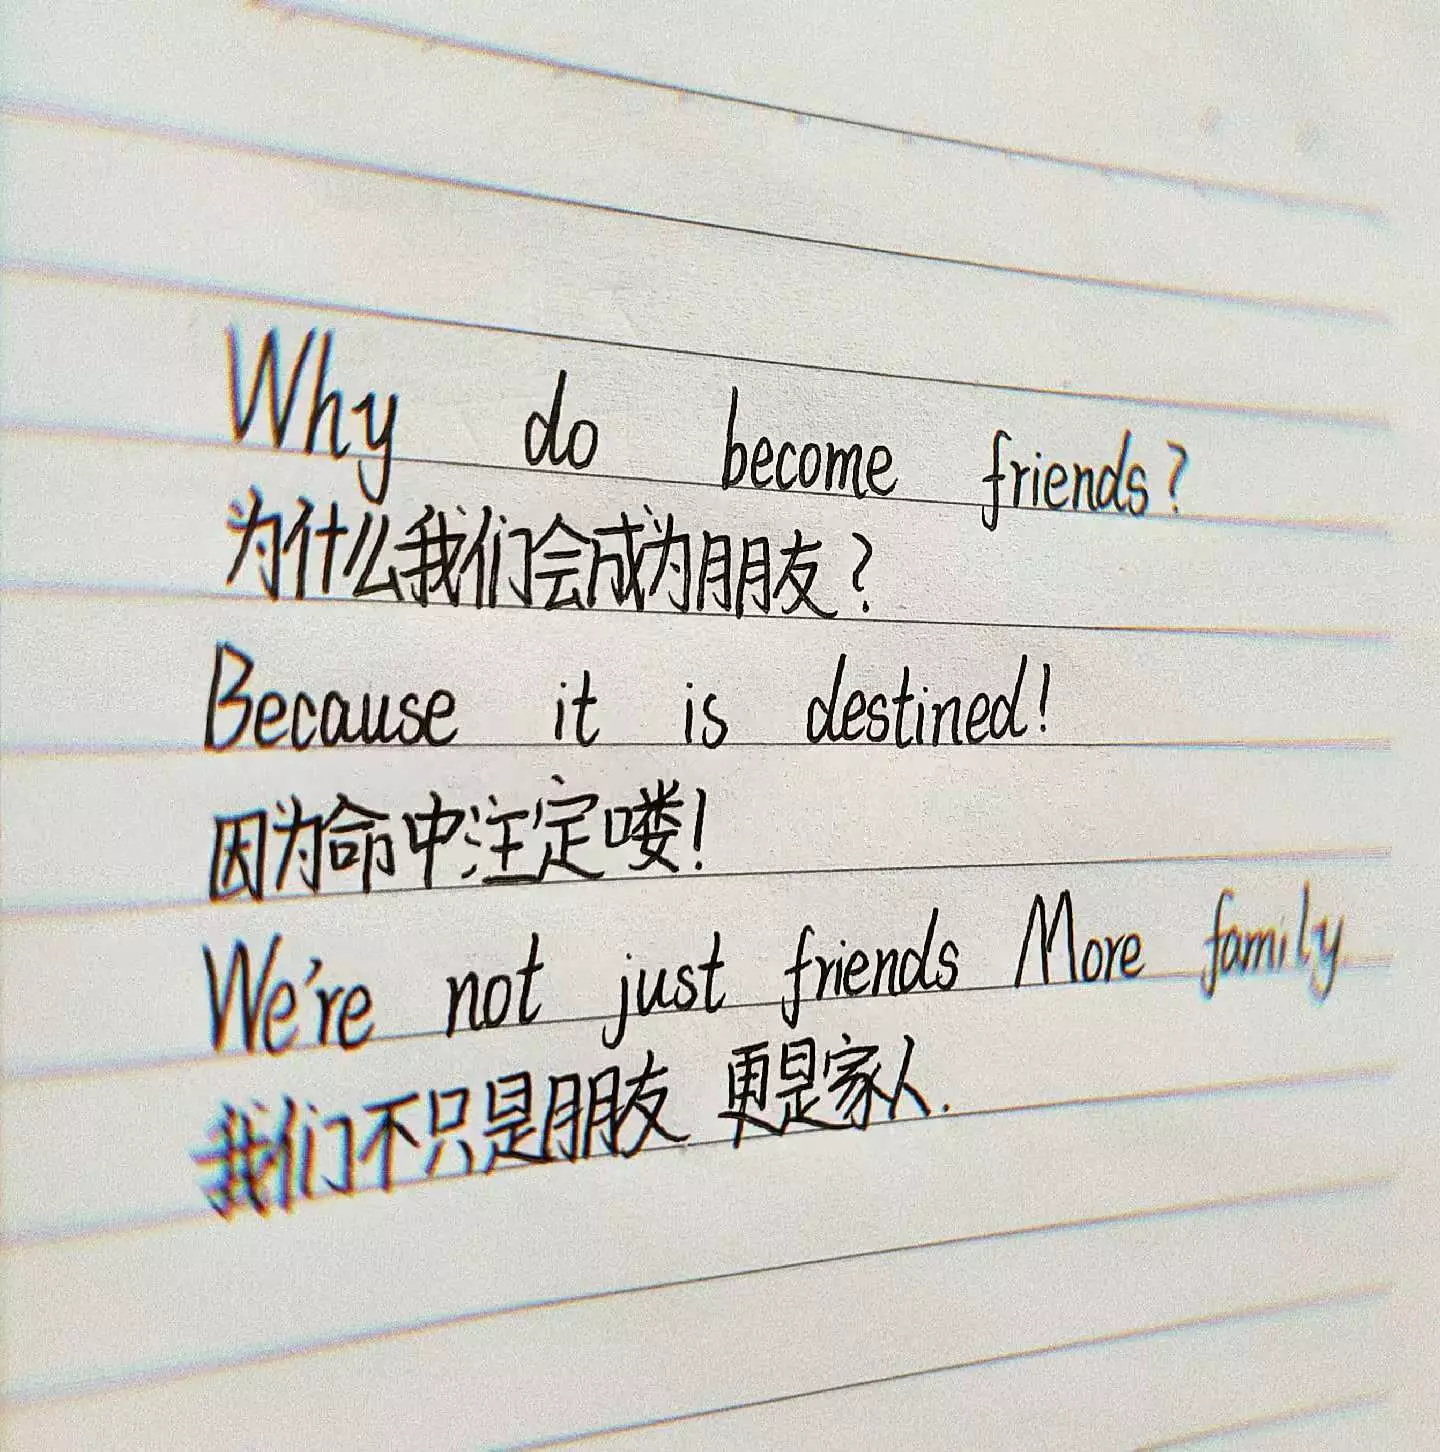 Why do become friends?
为什么我们会成为朋友?
Because it is destined!
因为命中注定喽!
We're not just friends More family.
我们不只是朋友 更是家人.